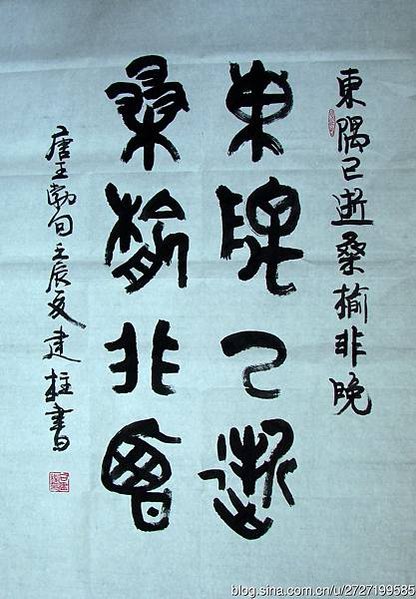 東隅已逝桑榆非晚
東隅已逝
桑榆非晚
唐王勃句壬辰夏建柱書
blog.sina.com.cn/u/2727199585